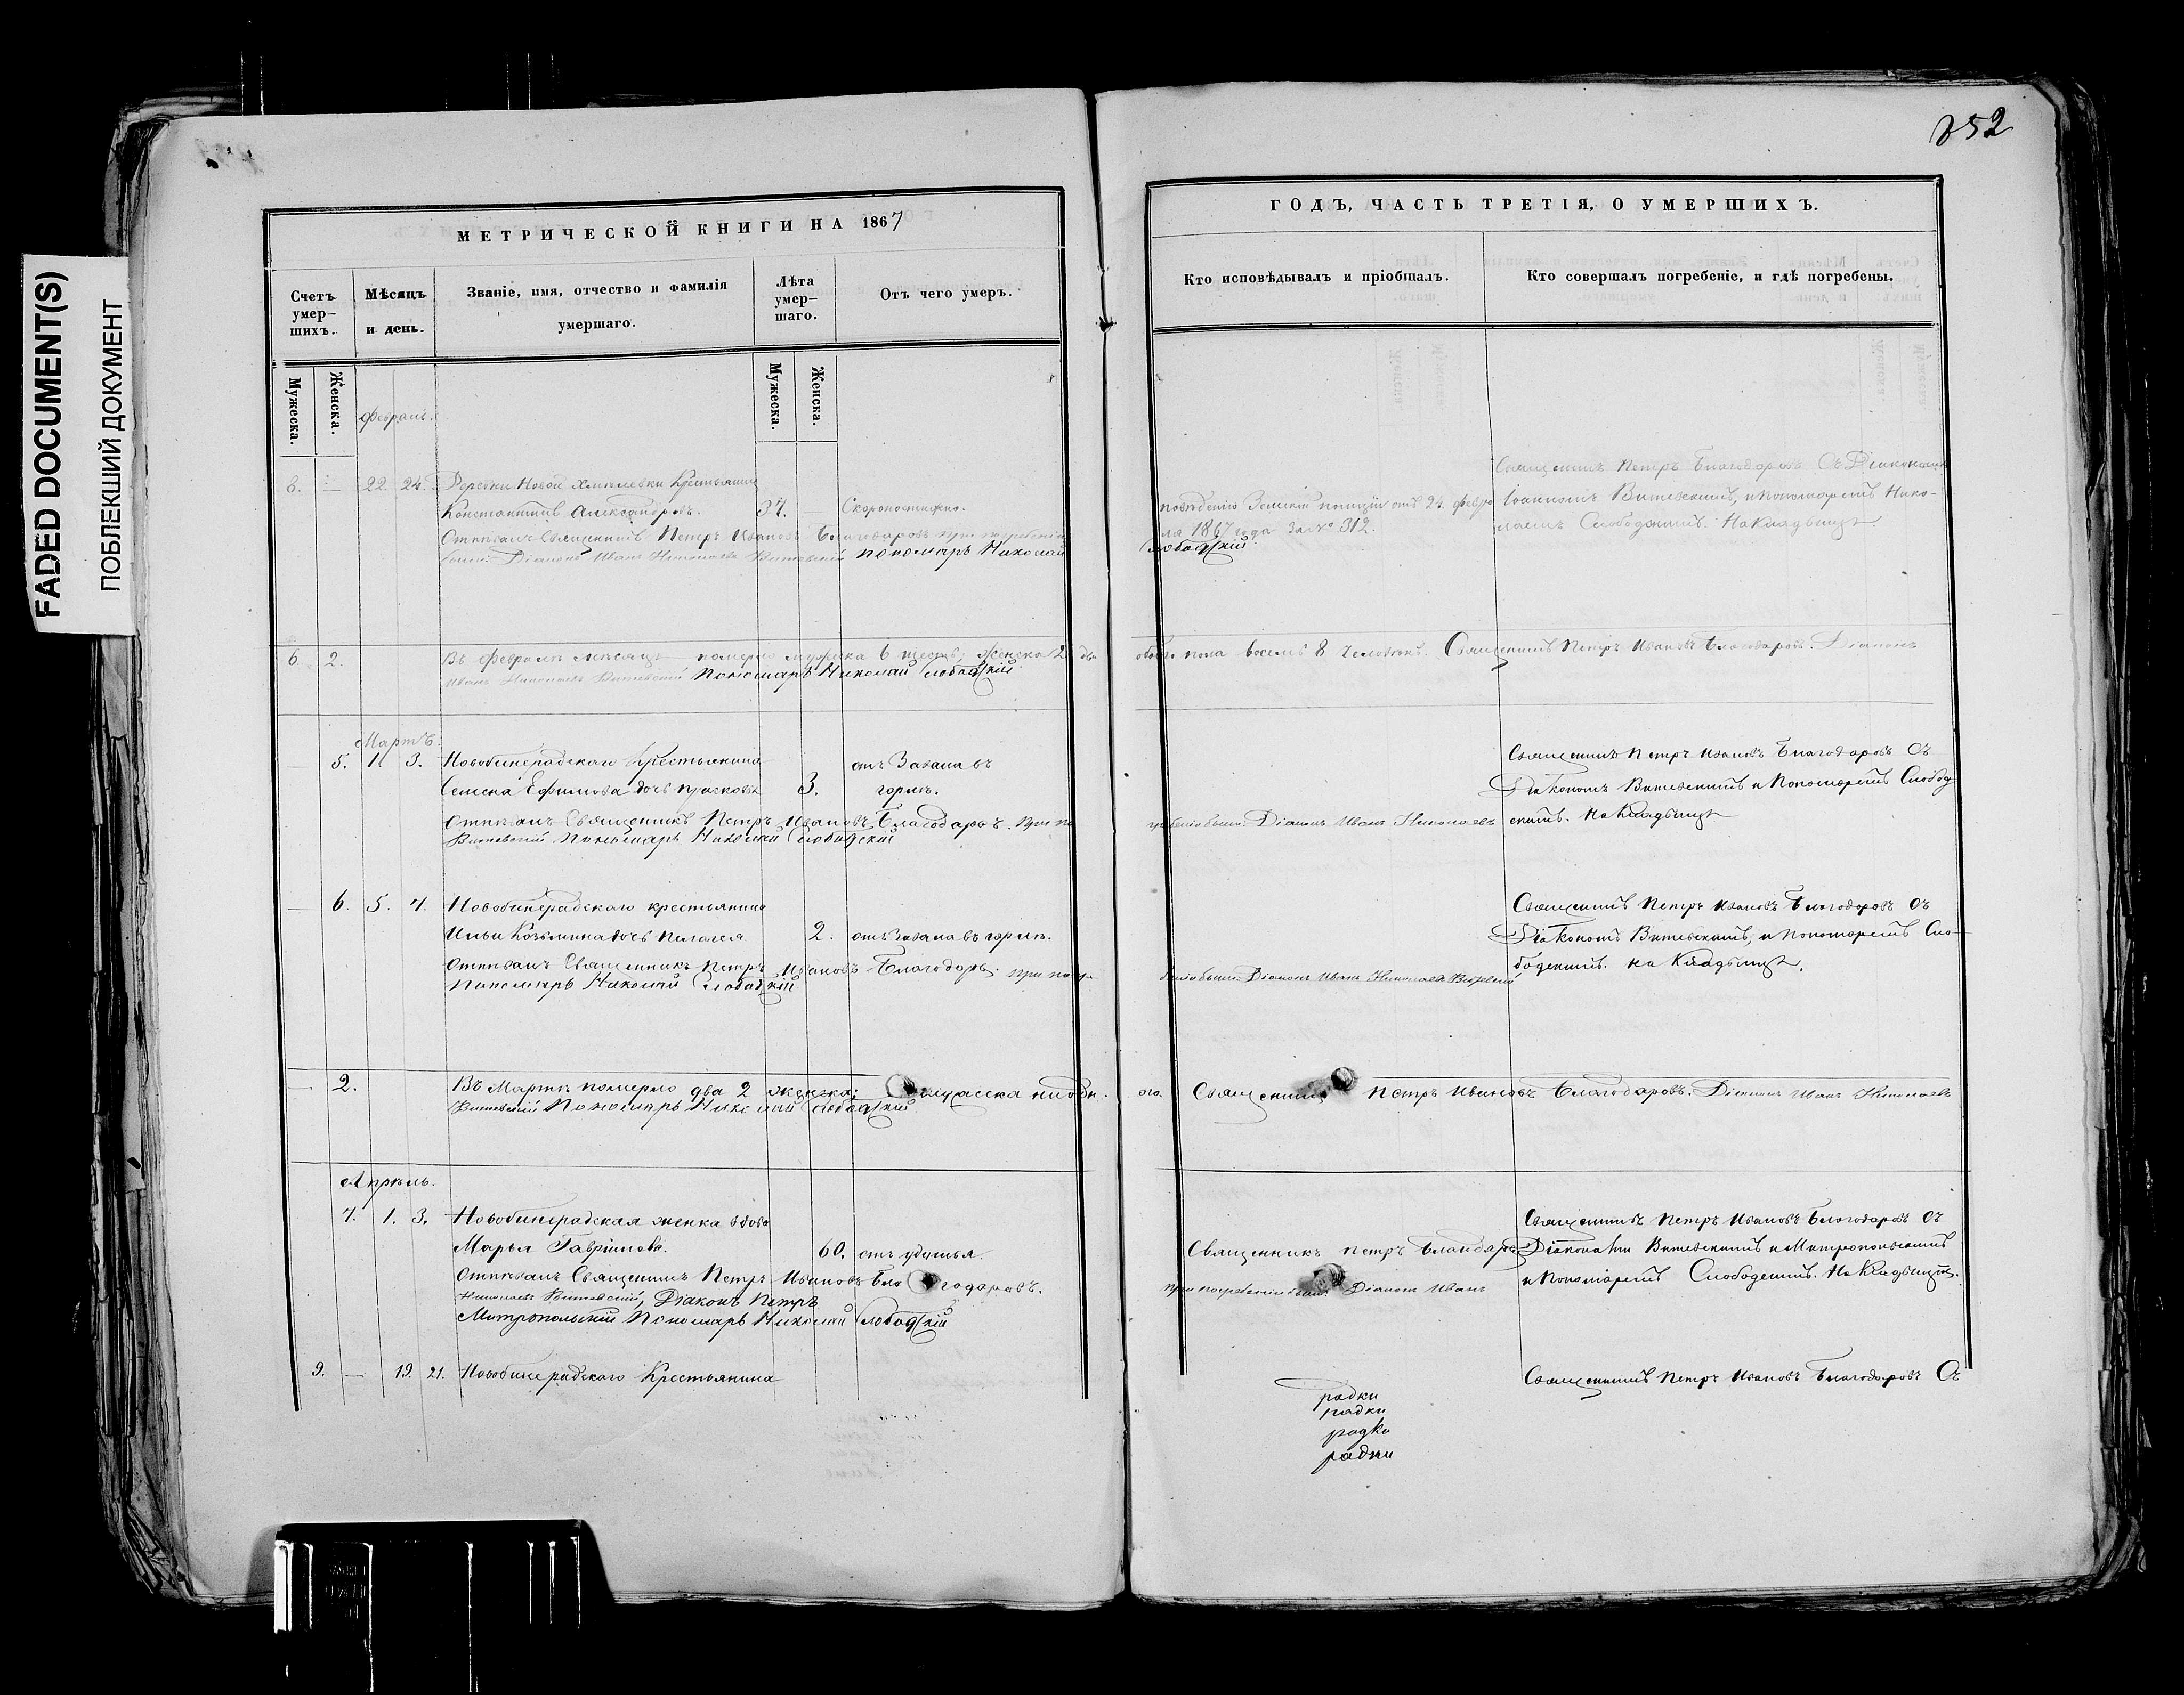 FADED DOCUMENT(S)
ПОБЛЕКШИЙ ДОКУМЕНТ
252
МЕТРИЧЕСКОЙ КНИГИ НА 1867
Счетъ умер-шихъ.
Мѣсяцъ и день.
Званіе, имя, отчество и фамилія умершаго.
Лѣта умер-шаго.
Отъ чего умеръ.
Мужеска.
Женска.
Мужеска.
Женска.
Февраль.
8. — 22. 24. Деревни Новой Хмелевки Крестьянинъ
Константинъ Александровъ. 37. — Скоропостижно.
Отпѣвалъ Священникъ Петръ Ивановъ Благодаровъ при погребеніи
были: Діаконъ Иванъ Николаевъ Витевскій Пономарь Николай
6. 2. Въ Февралѣ мѣсяцѣ померло мужеска 6 шесть; женска 2 два
Иванъ Николаевъ Витевскій Пономарь Николай Слободскій
Мартъ.
— 5. 1. 3. Новобинарадскаго Крестьянина
Семена Ефимова дочь 3. отъ Завала въ
горлѣ.
Отпѣвалъ Священникъ Петръ Ивановъ Благодаровъ. При по
Витевскій Пономарь Николай Слободскій
— 6. 5. 7. Новобинарадскаго крестьянина
Ильи Козьмина дочь Пелагея 2. отъ Завала въ горлѣ.
Отпѣвалъ Священникъ Петръ Ивановъ Благодаровъ. при погре
Пономарь Николай Слободскій
— 2. Въ Мартѣ померло два 2 женска; мужеска ни одн.
Витевскій Пономарь Николай Слободскій
Апрѣль.
7. 1. 3. Новобинарадская женка вдова
Марья Гаврилова. 60. отъ удушья.
Отпѣвалъ Священникъ Петръ Ивановъ Благодаровъ.
Николаевъ Витевскій, Діаконъ Петръ
Митропольскій Пономарь Николай Слободскій
9. — 19. 21. Новобинарадскаго Крестьянина
ГОДЪ, ЧАСТЬ ТРЕТІЯ, О УМЕРШИХЪ.
Кто исповѣдывалъ и пріобщалъ.
Кто совершалъ погребеніе, и гдѣ погребены.
Священникъ Петръ Благодаровъ Съ Діакономъ
Земской полиціи отъ 24. февра
Іоанномъ Витевскимъ, и Пономаремъ Нико-
ля 1867 года за № 312.
лаемъ Слободскимъ. На Кладбищѣ
Слободскій
обоего пола восемь 8 человѣкъ. Священникъ Петръ Ивановъ Благодаровъ. Діаконъ
Священникъ Петръ Ивановъ Благодаровъ Съ
Діакономъ Витевскимъ и Пономаремъ Слобод
гребеніи были: Діаконъ Иванъ Николаевъ
скимъ. На Кладбищѣ
Священникъ Петръ Ивановъ Благодаровъ Съ
Діакономъ Витевскимъ, и Пономаремъ Сло-
бодскимъ. на Кладбищѣ.
беніи были: Діаконъ Иванъ Николаевъ Витевскій
ого. Священникъ Петръ Ивановъ Благодаровъ. Діаконъ Иванъ Николаевъ
Священникъ Петръ Ивановъ Благодаровъ Съ
Священникъ Петръ Благодаровъ
Діаконами Витевскимъ и Митропольскимъ
и Пономаремъ Слободскимъ. На Кладбищѣ.
при погребеніи были: Діаконъ Иванъ
Священникъ Петръ Ивановъ Благодаровъ Съ
радки
радки
радки
радки